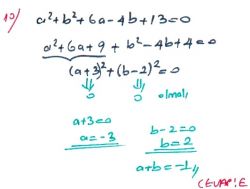 10/ a²+b²+6a-4b+13=0
a²+6a+9 + b²-4b+4=0
(a+3)²+(b-2)²=0
0 0 olmalı
a+3=0 b-2=0
a=-3 b=2
a+b=-1//
CEVAP: E